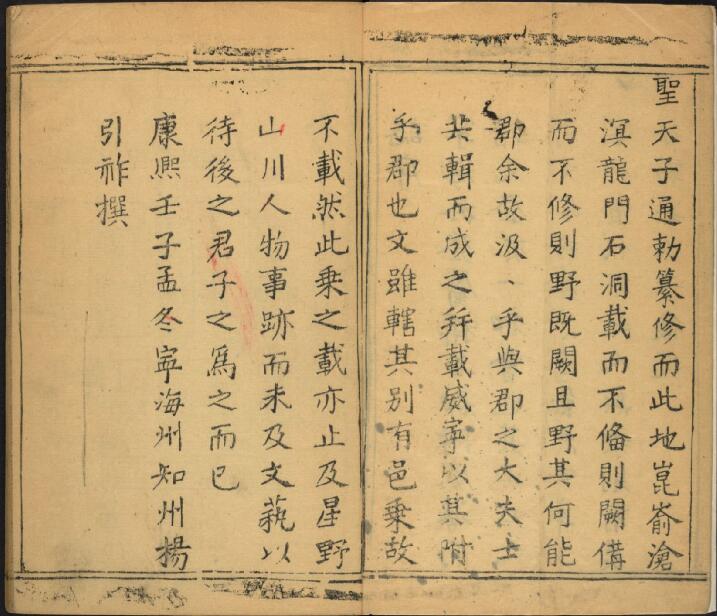 聖天子通勅纂修而此地崑嵛滄
溟龍門石洞載而不俻則闕俻
而不修則野既闕且野其何能
郡余故汲、乎與郡之大夫士
共輯而成之幷載威寜以其附
乎郡也文雖轄其别有邑乗故
不載然此乗之載亦止及星野
山川人物事跡而未及文藝以
待後之君子之爲之而已
康熈壬子孟冬寜海州知州楊
引祚撰